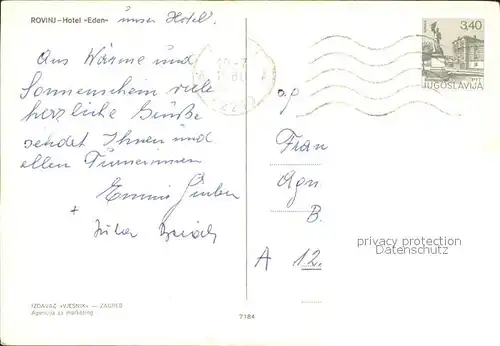 ROVINJ – Hotel »Eden« unser Hotel.
Aus Wärme und
Sonnenschein viele
herzliche Grüße
sendet Ihnen und
allen Turnerinnen
Emmi
+
3,40
JUGOSLAVIJA
Frau
B.
A 12.
privacy protection
Datenschutz
IZDAVAČ »VJESNIK« — ZAGREB
Agencija za marketing
7184